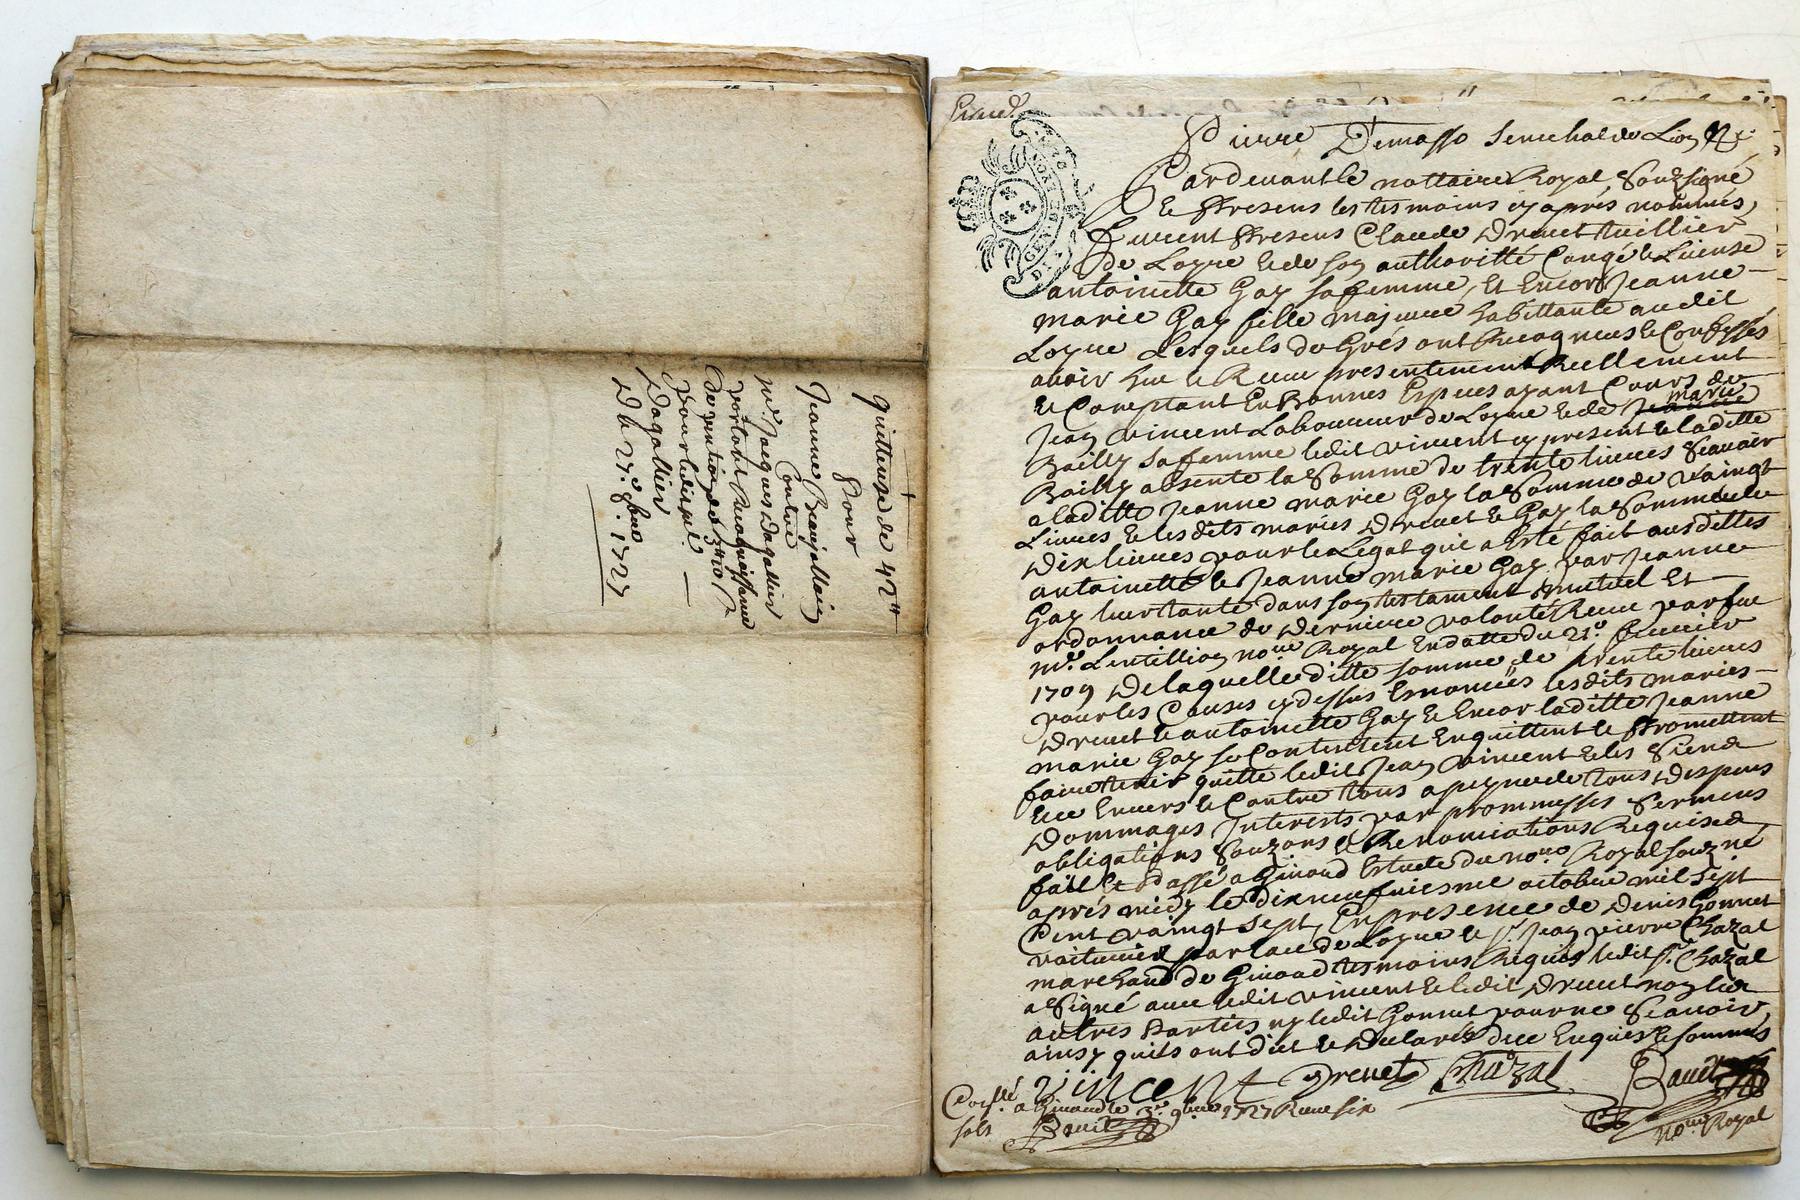 quittense de 42#
Pour
Jeanne Beaujollais
Contre
mr. Jacques Dagallier
portant Recognoissance
de pention de 3# 10 s
Pour ledit sr.
Dagallier
Du 27e. 1727
Pierre Demasso Senechal de Lion &c.
Pardevant le nottaire Royal Souzsigné
le Presens les tesmoins cy aprés nommés,
furent Presens Claude Drevet tuillier
de Loyre & de son authoritté Congé & Lisense
antoinette Gay sa femme, Et Encor Jeanne
marie Gay fille majeure habittante audit
Loyre Lesquels de Grés ont Recogneus & Confessés
avoir heu & Receu presentement & Reellement
& Comptant En Bonnes Especes ayant Cours de
Jean vincent Laboureur de Loyre & de Jeanne marie
Bailly sa femme ledit vincent cy present & laditte
Bailly absente la Somme de trente livres Scavoir
a laditte Jeanne marie Gay la Somme de vaingt
Livres & les dits mariés Drevet & Gay la Somme de
Dix livres pour le Legat qui a Esté fait ausdittes
antoinette & Jeanne marie Gay par Jeanne
Gay leur tante dans son testament mutuel Et
ordonnance de Derniere volonté Receu par feu
me. Lentillion nore. Royal En datte du 21e. fevrier
1709 De laquelle ditte somme de trente livres
pour les Causes cy dessus Enoncées lesdits mariés
Drevet & antoinette Gay & Encor laditte Jeanne
marie Gay se Contentent En quittent & Promettent
faire tenir quitte ledit Jean vincent & les Siens
Envers & Contre tous a peyne de tous Despens
Dommages Interests par prommesses Sermens
obligations Souzons & Renonciations Requises
fait Et Passé a Givord Estude du nore. Royal souzné
aprés midy le dixneufviesme octobre mil sept
Cent vaingt sept, En presence de Denis Gonnet
voiturier par eau de Loyre & sr. Jean pierre Chazal
marchand de Givord tesmoins Requis ledit sr. Chazal
a Signé avec ledit vincent & ledit Drevet non les
autres Parties ny ledit Gonnet pour ne Scavoir,
ainsy quils ont dit & Declaré de ce Enquis & sommés
vincent Drevet Chazal
nore. Royal
a Givord le 3e. 9bre 1727 Receu six
sols